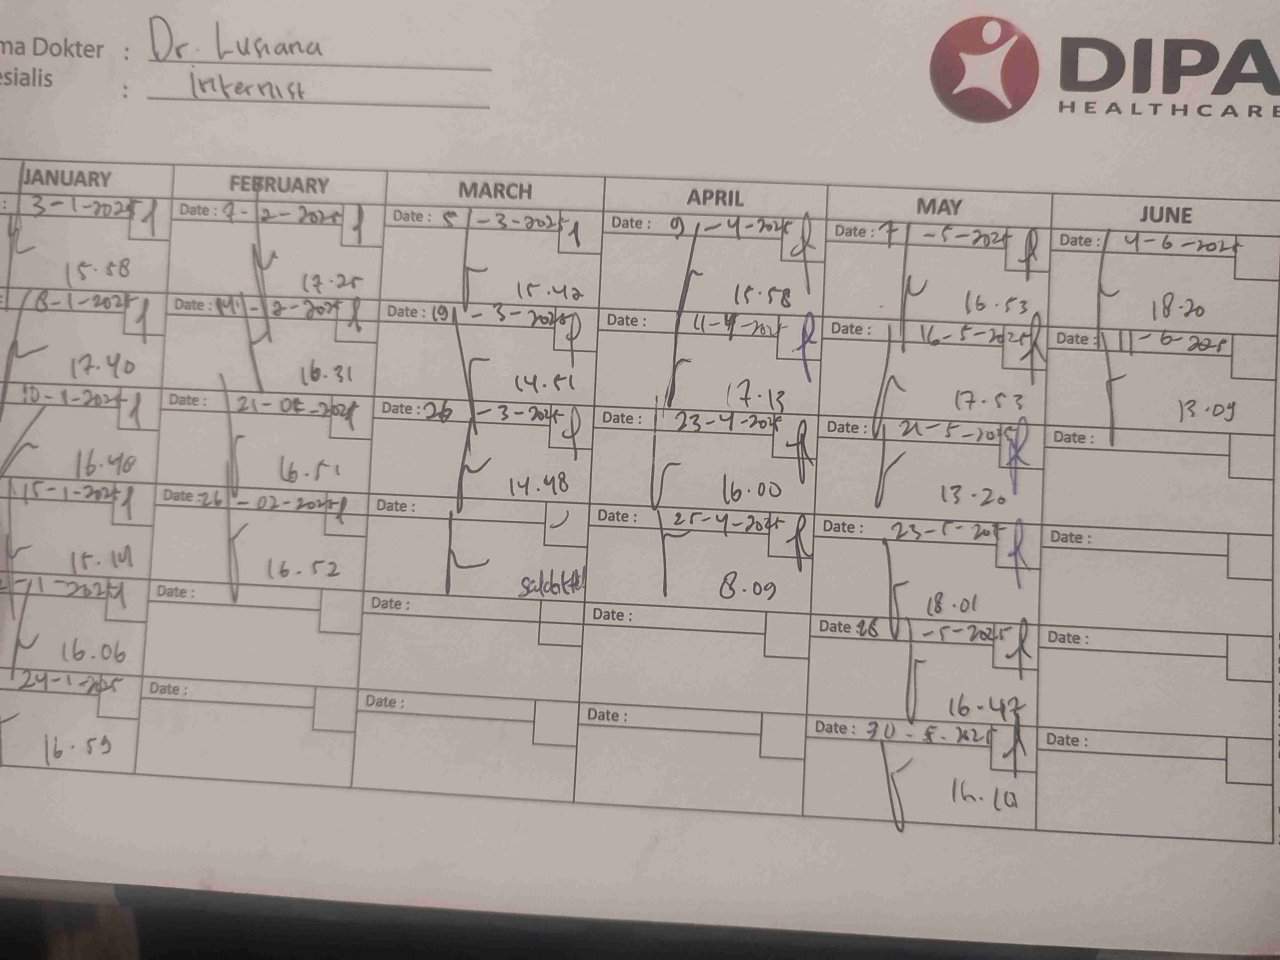 ma Dokter : Dr. Lusiana
esialis : Internist
DIPA
HEALTHCARE
JANUARY FEBRUARY MARCH APRIL MAY JUNE
: 3-1-2025 Date : 7-2-2025 Date : 5-3-2025 Date : 9-4-2025 Date : 7-5-2025 Date : 4-6-2025
15.58 17.25 15.42 15.58 16.53 18.20
8-1-2025 Date : 14-2-2025 Date : 19-3-2025 Date : 11-4-2025 Date : 16-5-2025 Date : 11-6-2025
17.40 16.31 14.51 17.13 17.53 13.09
10-1-2025 Date : 21-02-2025 Date : 26-3-2025 Date : 23-4-2025 Date : 21-5-2025 Date :
16.48 16.51 14.48 16.00 13.20
15-1-2025 Date : 26-02-2025 Date : Date : 25-4-2025 Date : 23-5-2025 Date :
15.14 16.52 8.09 18.01
-1-2025 Date : Date : Date : Date : 28-5-2025 Date :
16.06 16.47
24-1-2025 Date : Date : Date : Date : 30-5-2025 Date :
16.59